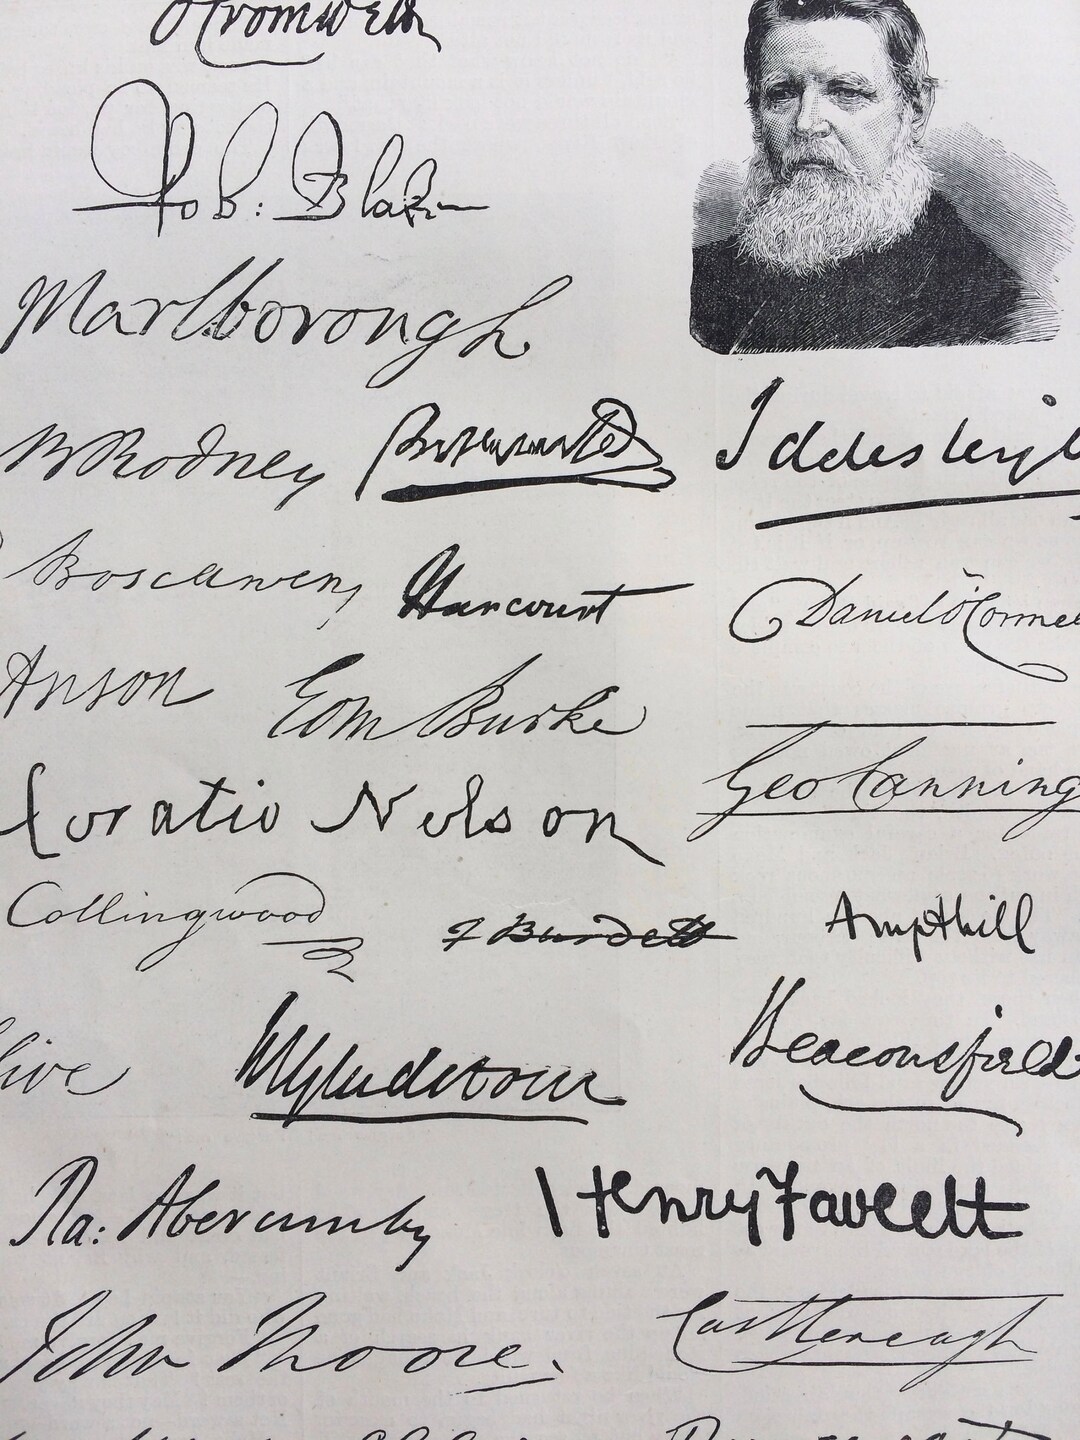 O Cromwell
Rob: Blake
Marlborough
Rodney
Iddesleigh
Boscawen
Harcourt
Daniel O'Connell
Anson
Edm Burke
Geo Canning
Horatio Nelson
Collingwood
F Burdett
Ampthill
Clive
WEGladstone
Beaconsfield
Ra: Abercromby
Henry Fawcett
John Moore.
Castlereagh